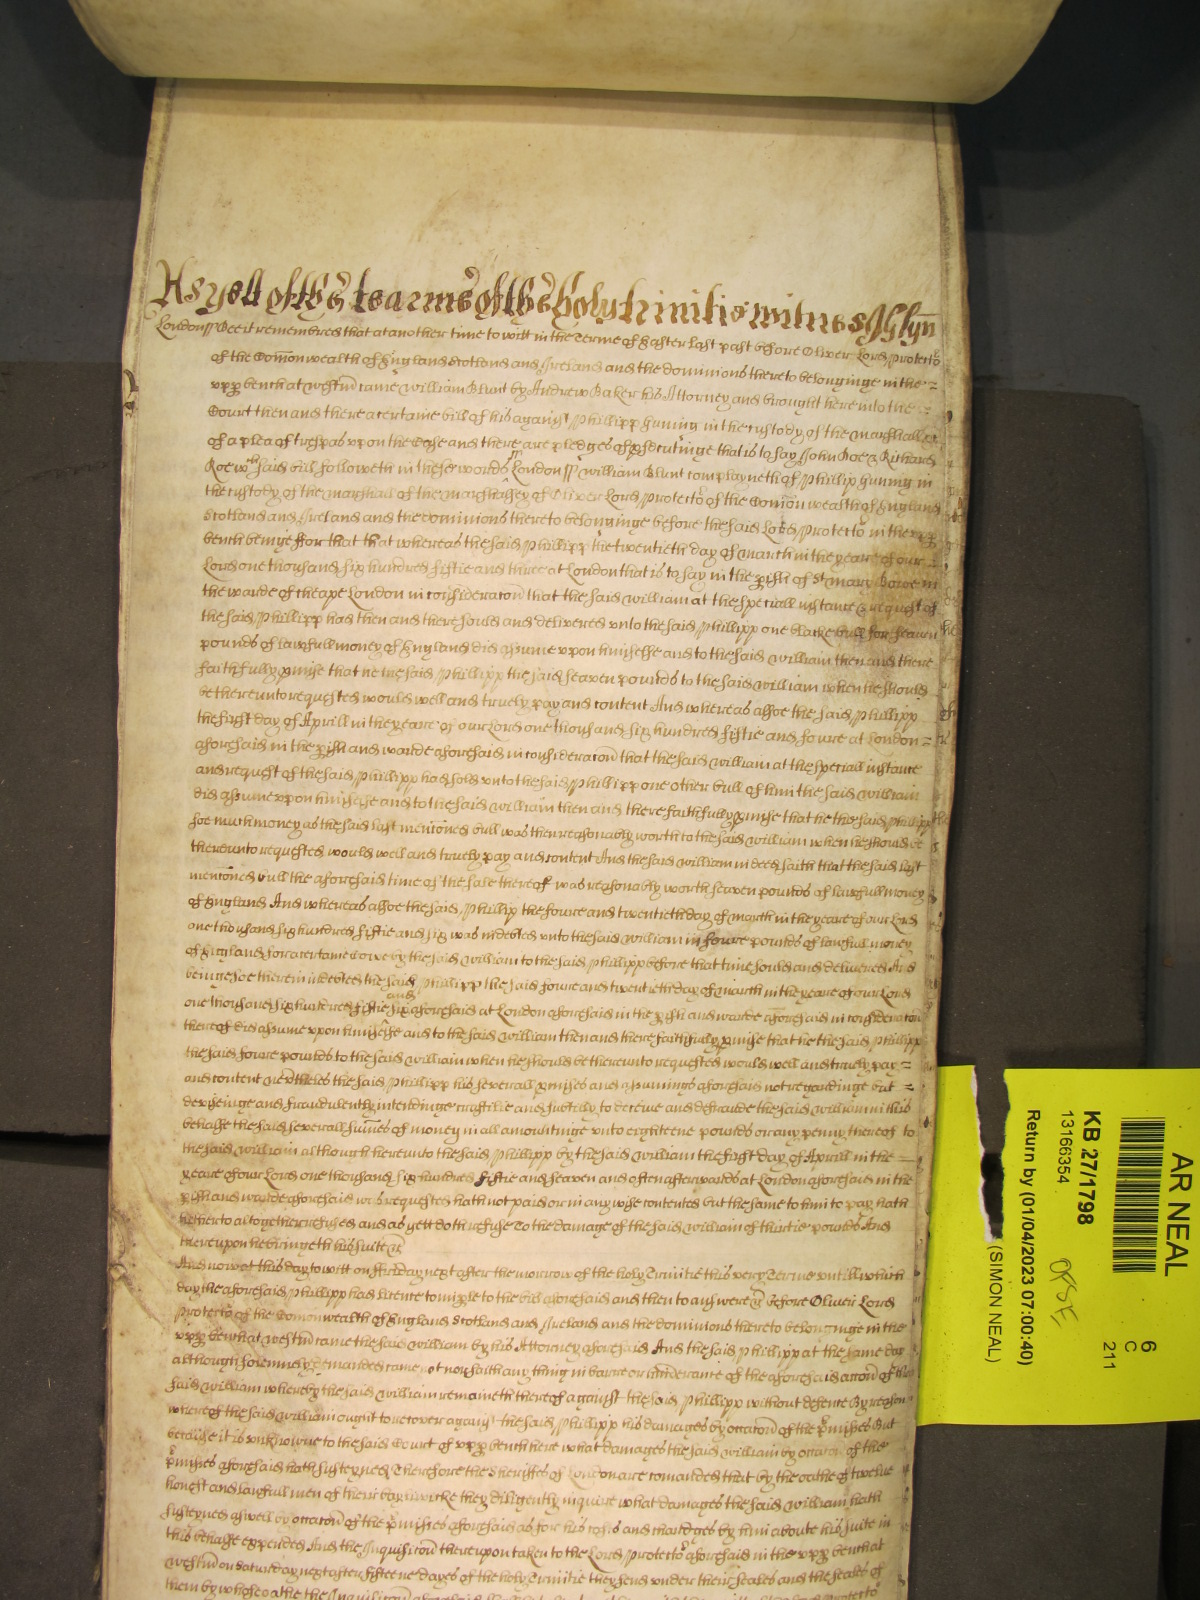 As yett of the tearme of the holy trinitie witnes J Glyn
London ss Bee it remembred that at another time to witt in the Terme of Easter last past before Oliver Lord Protector
of the Comon wealth of England Scotland and Ireland and the dominions thereto belonginge in the =
upp bench at westm came William Blunt by Andrew Baker his Attorney and brought here into the =
Court then and there a certaine bill of his against Phillipp Huning in the custody of the marshall &c
of a plea of trespas upon the Case and there are pledges of prsecutinge that is to say John Doe & Richard
Roe wch said bill followeth in these words ss London ss William Blunt complayneth of Phillip Huning in
the custody of the marshall of the marshalsey of Oliver Lord Protector of the Comon wealth of England
Scotland and Ireland and the dominions thereto belonginge before the said Lord Protector in the upp
bench beinge ffor that that whereas the said Phillipp the twentieth day of march in the yeare of our =
Lord one thousand six hundred fiftie and three at London that is to say in the pish of St mary Bowe in
the warde of Cheape London in consideracon that the said William at the speciall instance & request of
the said Phillipp had then and there sould and delivered unto the said Phillipp one blacke bull for seaven
pounds of lawfull money of England did assume upon himselfe and to the said William then and there
faithfully pmise that he the said Phillipp the said seaven pounds to the said William when he should
be thereunto requested would well and truely pay and content And whereas alsoe the said Phillipp
the first day of Aprill in the yeare of our Lord one thousand six hundred fiftie and foure at London =
aforesaid in the pish and warde aforesaid in consideracon that the said William at the speciall instance
and request of the said Phillipp had sold unto the said Phillipp one other bull of him the said William
did assume upon himselfe and to the said William then and there faithfully pmise that he the said Phillipp
soe much money as the said last mentioned bull was then reasonably worth to the said William when he should be
thereunto requested would well and truely pay and content And the said William indeed saith that the said last
mentioned bull the aforesaid time of the sale thereof was reasonably worth seaven pounds of lawfull money
of England And whereas alsoe the said Phillip the foure and twentieth day of march in the yeare of our Lord
one thousand six hundred fiftie and six was indebted unto the said William in foure pounds of lawfull money
of England for a certaine Cowe by the said William to the said Phillipp before that time sould and delivered And
beinge soe therein indebted the said Phillipp the said foure and twentieth day of march in the yeare of our Lord
one thousand six hundred fiftie and six aforesaid at London aforesaid in the pish and warde aforesaid in consideracon
thereof did assume upon himselfe and to the said William then and there faithfully pmise that he the said Phillipp
the said foure pounds to the said William when he should be thereunto requested would well and truely pay =
and content nevertheles the said Phillipp his severall pmises and assumings aforesaid not regardinge but =
deviseinge and fraudulently intendinge craftilie and subtilly to deceive and defraude the said William in this
behalfe the said severall summes of money in all amountinge unto eighteene pounds or any penny thereof to
the said William although thereunto the said Phillipp by the said William the first day of Aprill in the =
yeare of our Lord one thousand six hundred fiftie and seaven and often afterwards at London aforesaid in the
pish and warde aforesaid was requested hath not paid or in any wise contented but the same to him to pay hath
hitherto altogether refused and as yett doth refuse To the damage of the said William of thirtie pounds And
thereupon he bringeth his suite &c
And now at this day to witt on ffriday next after the morrow of the holy Trinitie this very Terme untill which
day the aforesaid Phillipp had licence to imple to the bill aforesaid and then to answere &c before Oliver Lord
Protector of the Comonwealth of England Scotland and Ireland and the dominions thereto belonginge in the
upp bench at westm came the said William by his Attorney aforesaid And the said Phillipp at the same day
although solemnely demanded came not nor saith any thing in barre or hinderance of the aforesaid accon of the
said William whereby the said William remaineth thereof against the said Phillipp without defence By reason
whereof the said William ought to recover against the said Phillipp his damages by occacon of the pmises But
because it is unknowne to the said Court of upp bench here what damages the said William by occacon of the
pmises aforesaid hath susteyned Therefore the Sheriffes of London are comanded that by the oathe of twelve
honest and lawfull men of their baywicke they diligently inquire what damages the said William hath
susteyned aswell by occacon of the pmises aforesaid as for his costs and chardges by him about his suite in
this behalfe expended And the Inquisicon thereupon taken to the Lord Protector aforesaid in the upp bench at
westm on saturday next after fifteene dayes of the holy Trinitie they send under their seales and the seales of
them by whose oathe the Inquisicon
AR NEAL
6
C
211
KB 27/1798
13166354
Return by (01/04/2023 07:00:40)
(SIMON NEAL)